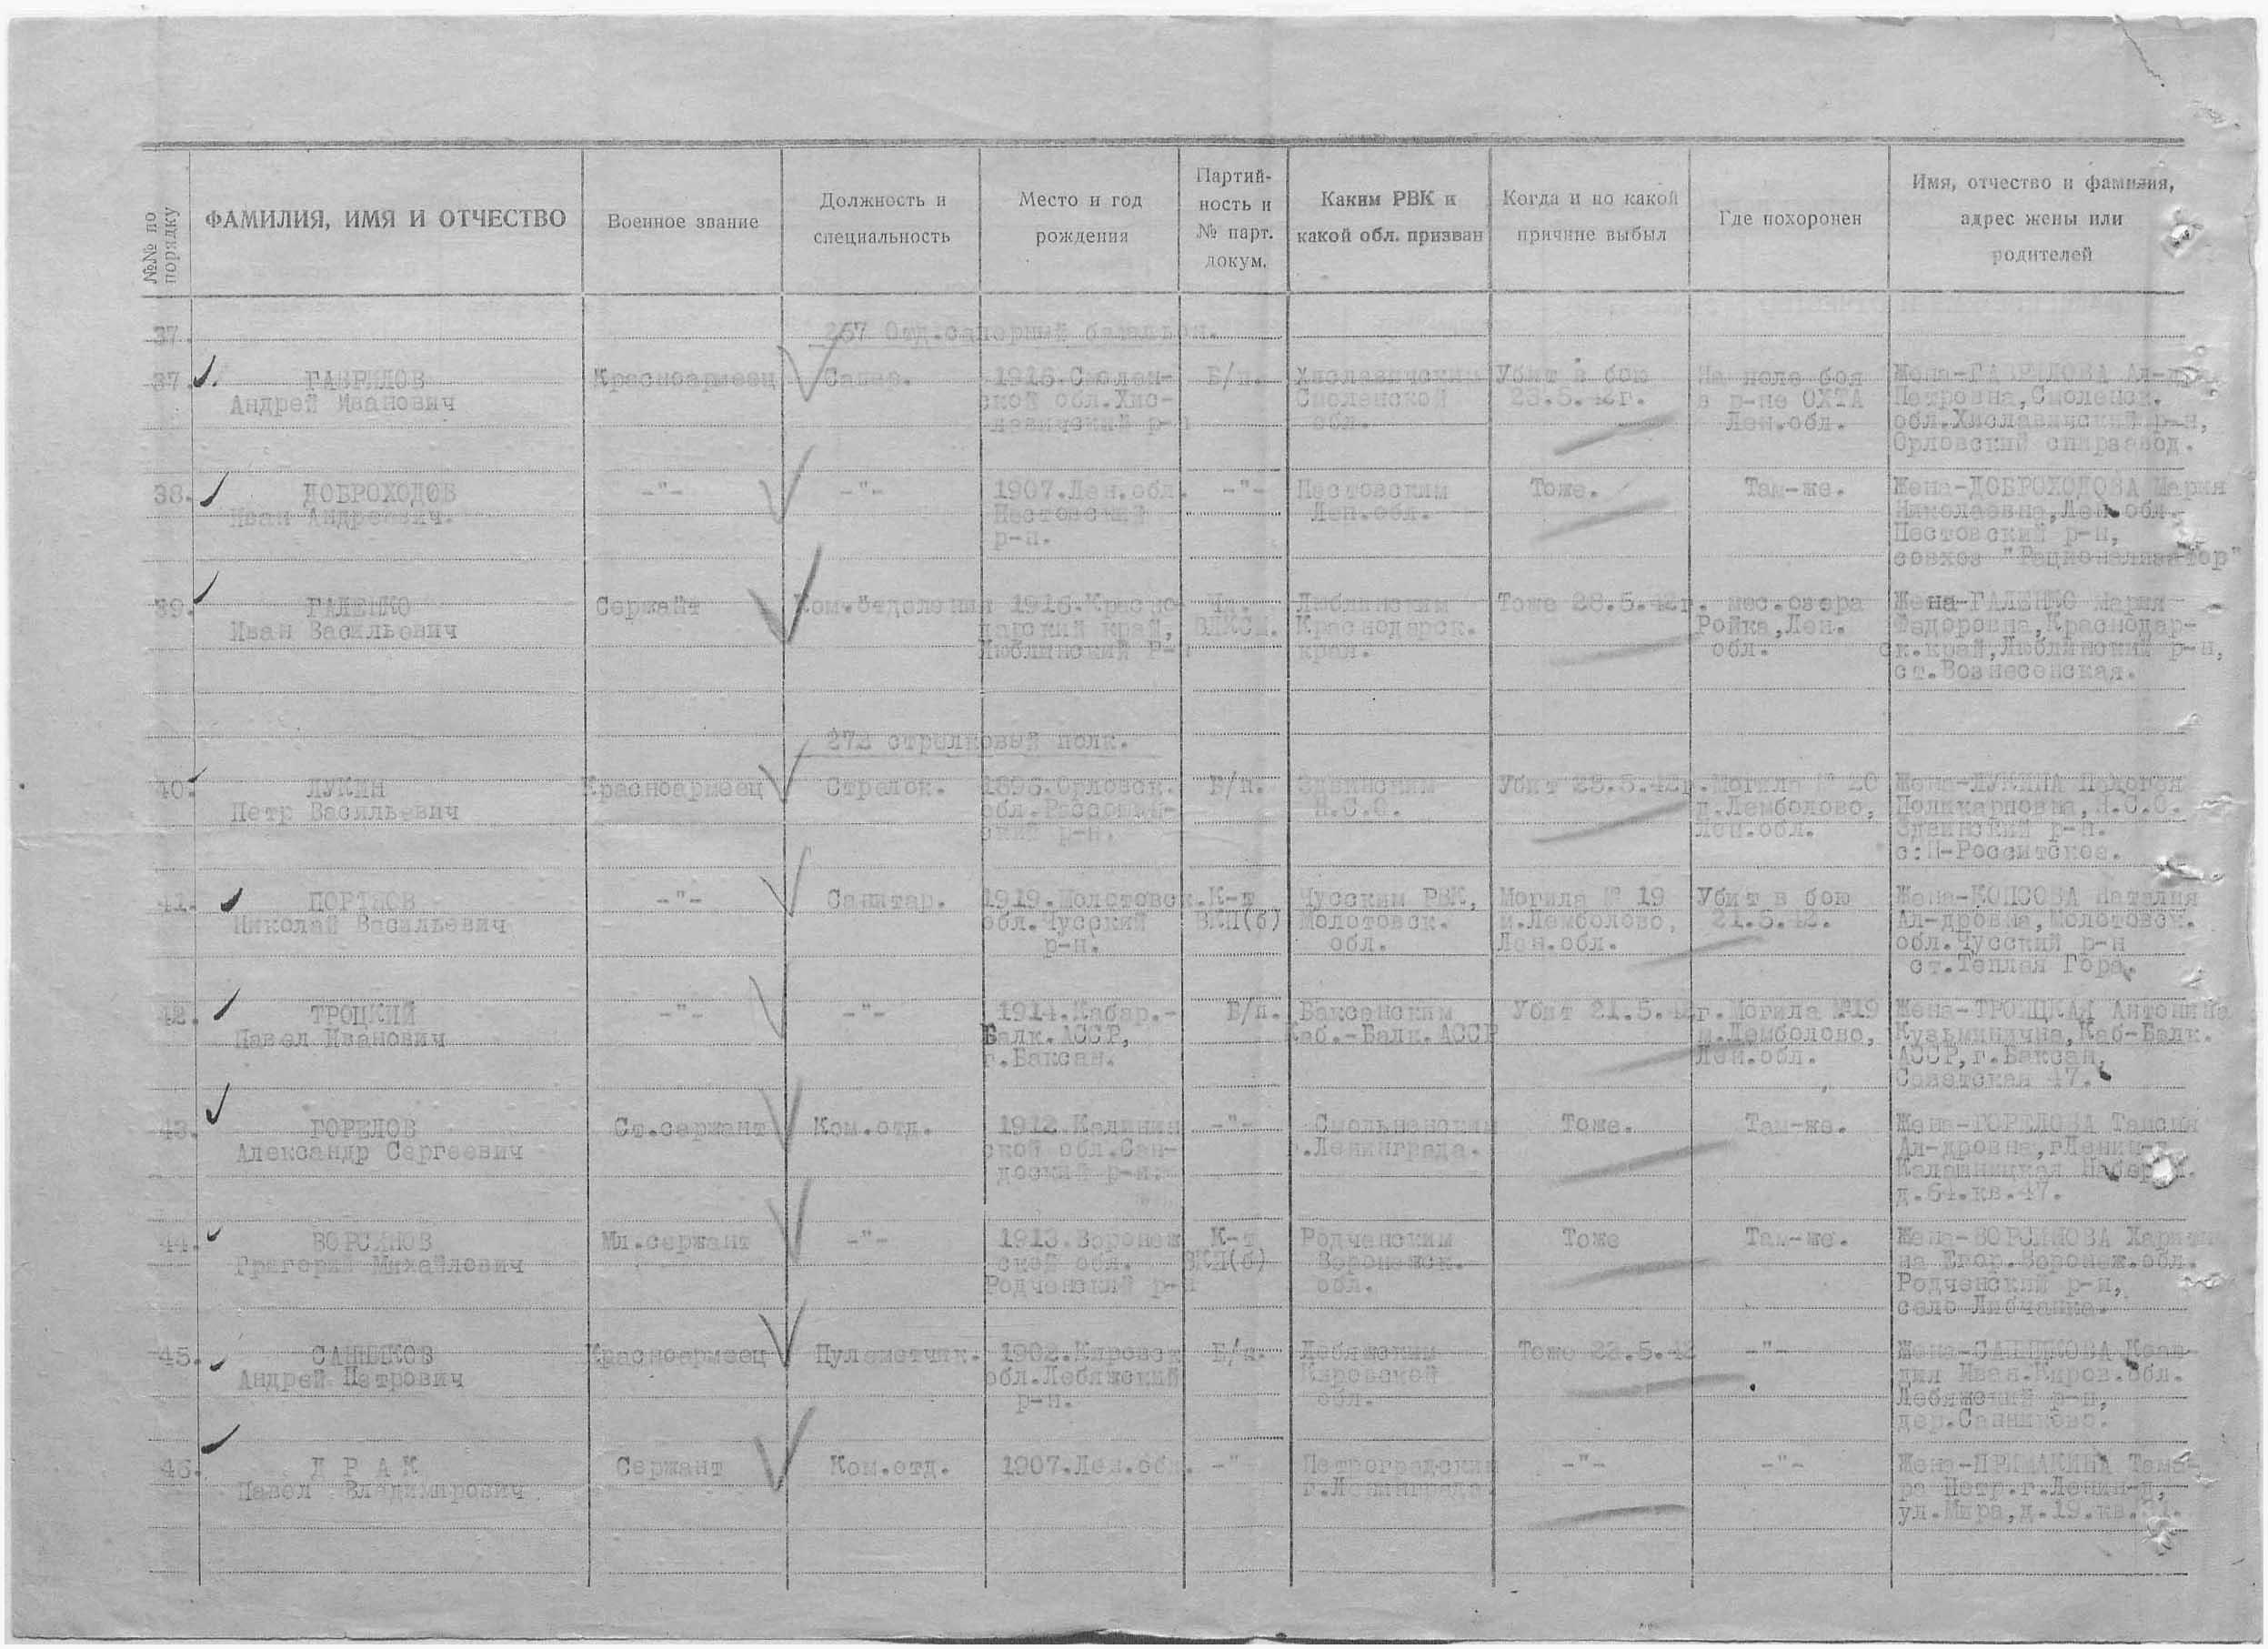 №№ по порядку
ФАМИЛИЯ, ИМЯ И ОТЧЕСТВО
Военное звание
Должность и специальность
Место и год рождения
Партий-ность и № парт. докум.
Каким РВК и какой обл. призван
Когда и по какой причине выбыл
Где похоронен
Имя, отчество и фамилия, адрес жены или родителей
37.
267 Отд.саперный батальон.
37. ГАВРИЛОВ Красноармеец Сапер. 1916.Смолен- Б/п. Хиславичским Убит в бою На поле боя Жена-ГАВРИЛОВА Ал-др.
Андрей Иванович ской обл.Хис- Смоленской 23.5.42г. в р-не ОХТА Петровна,Смоленск.
лавичский р-н обл. Лен.обл. обл.Хиславичский р-н,
Орловский спирзавод.
38. ДОБРОХОДОВ -"- -"- 1907.Лен.обл. -"- Пестовским Тоже. Там-же. Жена-ДОБРОХОДОВА Мария
Иван Андреевич. Пестовский Лен.обл. Николаевна,Лен.обл.
р-н. Пестовский р-н,
совхоз "Рационализатор"
39. ГАЛЕНКО Сержант Ком.отделения 1916.Красно- Чл. Люблинским Тоже 28.5.42г. мес.озера Жена-ГАЛЕНКО Мария
Иван Васильевич дарский край, ВЛКСМ. Краснодарск. Ройка,Лен. Федоровна,Краснодар-
Люблинский Р-н края. обл. ск.край,Люблинский р-н,
ст.Вознесенская.
272 стрелковый полк.
40. ЛУКИН Красноармеец Стрелок. 1896.Орловск. Б/п. Здвинским Убит 23.5.42г. Могила № 20 Жена-ЛУКИНА
Петр Васильевич обл. Н.С.О. д.Лемболово, Поликарповна,Н.С.О.
ский р-н. Лен.обл. Здвинский р-н.
с:Н-Росситское.
41. ПОРТНОВ -"- Санитар. 1919.Молотовск. К-т Чусским РВК, Могила № 19 Убит в бою Жена-КОПСОВА Наталия
Николай Васильевич обл.Чусский ВКП(б) Молотовск. м.Лемболово, 21.5.42. Ал-дровна,Молотовск.
р-н. обл. Лен.обл. обл.Чусский р-н
ст.Теплая Гора.
42. ТРОЦКИЙ -"- -"- 1914.Кабар.- Б/п. Баксанским Убит 21.5.42г. Могила №19 Жена-ТРОИЦКАЯ Антонина
Павел Иванович Балк.АССР, Каб.-Балк.АССР м.Лемболово, Кузьминична,Каб-Балк.
г.Баксан. Лен.обл. АССР,г.Баксан,
Советская 47.
43. ГОРЕЛОВ Ст.сержант Ком.отд. 1912.Калинин -"- Смольненским Тоже. Там-же. Жена-ГОРЕЛОВА Таисия
Александр Сергеевич ской обл.Сан- г.Ленинграда. Ал-дровна,гЛенин-д
доский р-н. Калашницкая Набер.
д.64.кв.47.
44. ВОРСИНОВ Мл.сержант -"- 1913.Воронеж К-т Родченским Тоже Там-же. Жена-ВОРСИНОВА
Григорий Михайлович ской обл. ВКП(б) Воронежск. на Егор.Воронеж.обл.
Родченский р-н обл. Родченский р-н,
село
45. САННИКОВ Красноармеец Пулеметчик. 1902.Кировск Б/п. Лебяжским Тоже 23.5.42 -"- Жена-САННИКОВА Клав-
Андрей Петрович обл.Лебяжский Кировской дия Иван.Киров.обл.
р-н. обл. Лебяжский р-н,
дер.Санниково.
46. Д Р А К Сержант Ком.отд. 1907.Лен.обл. -" Петроградским -"- -"- Жена-ПРИМАКИНА Тама-
Павел Владимирович г.Ленинграда ра Петр.г.Ленин-д,
ул.Мира,д.19.кв.